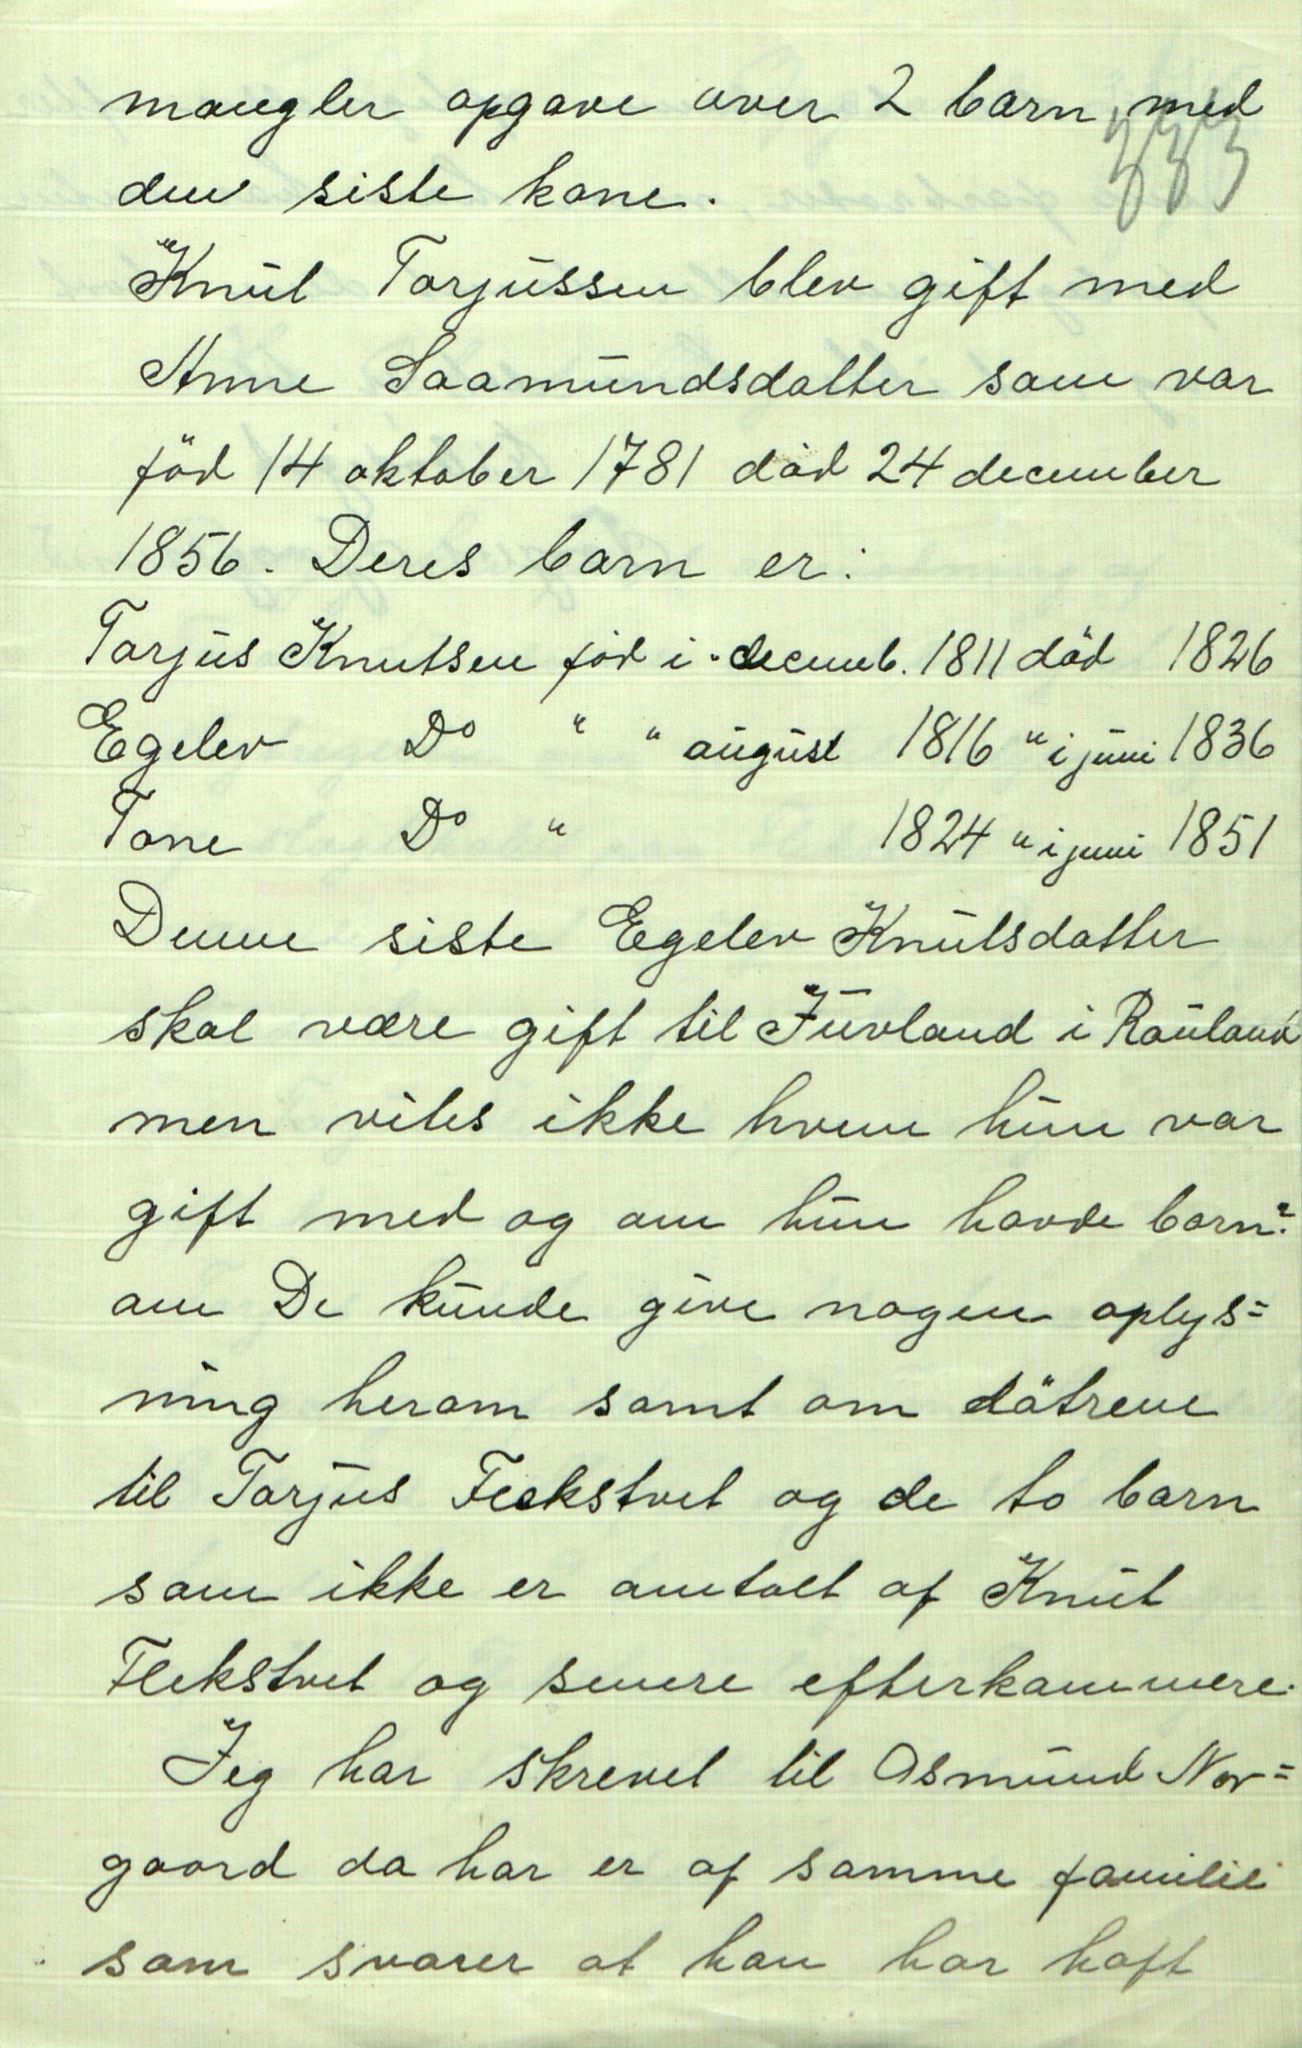 mangler opgave over 2 barn med
333
den siste kone.
Knut Torjussen blev gift med
Anne Saamundsdatter som var
född 14 oktober 1781 död 24 december
1856. Deres barn er:
Torjus Knutsen föd i decemb. 1811 död 1826
Egelev Do " " august 1816 " i juni 1836
Tone Do " 1824 " i juni 1851
Denne siste Egelev Knutsdatter
skal være gift til Juvland i Rauland
men vites ikke hvem hun var
gift med og om hun havde barn?
om De kunde give nogen oplys=
ning herom samt om dötrene
til Torjus Flekstvet og de to barn
som ikke er omtalt af Knut
Flekstvet og senere efterkommere.
Jeg har skrevet til Osmund Nor=
gaard da har er af samme familie
som svarer at han har haft